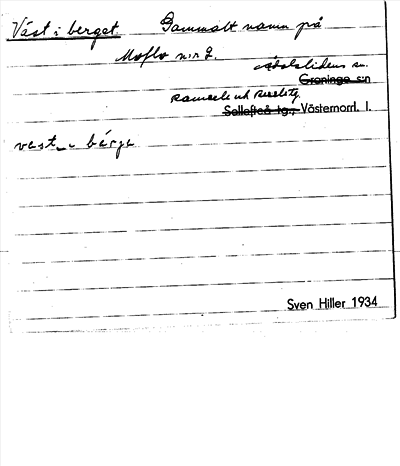 Väst i berget. Gammalt namn på
Moflo n:r 2.
Ådalslidens sn.
Graninge s:n
Ramsele och Resele tg.
Sollefteå tg., Västernorrl. l.
väst i bärje
Sven Hiller 1934